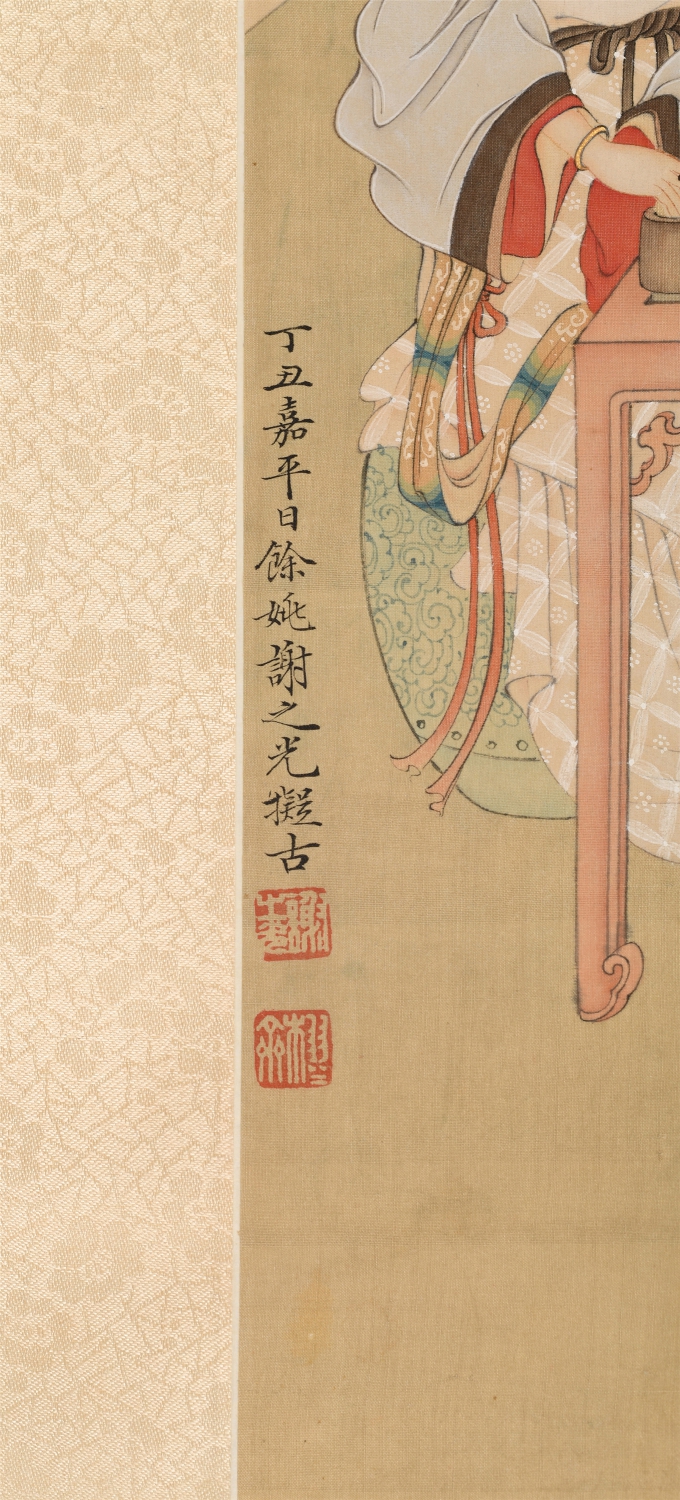 丁丑嘉平日餘姚謝之光擬古